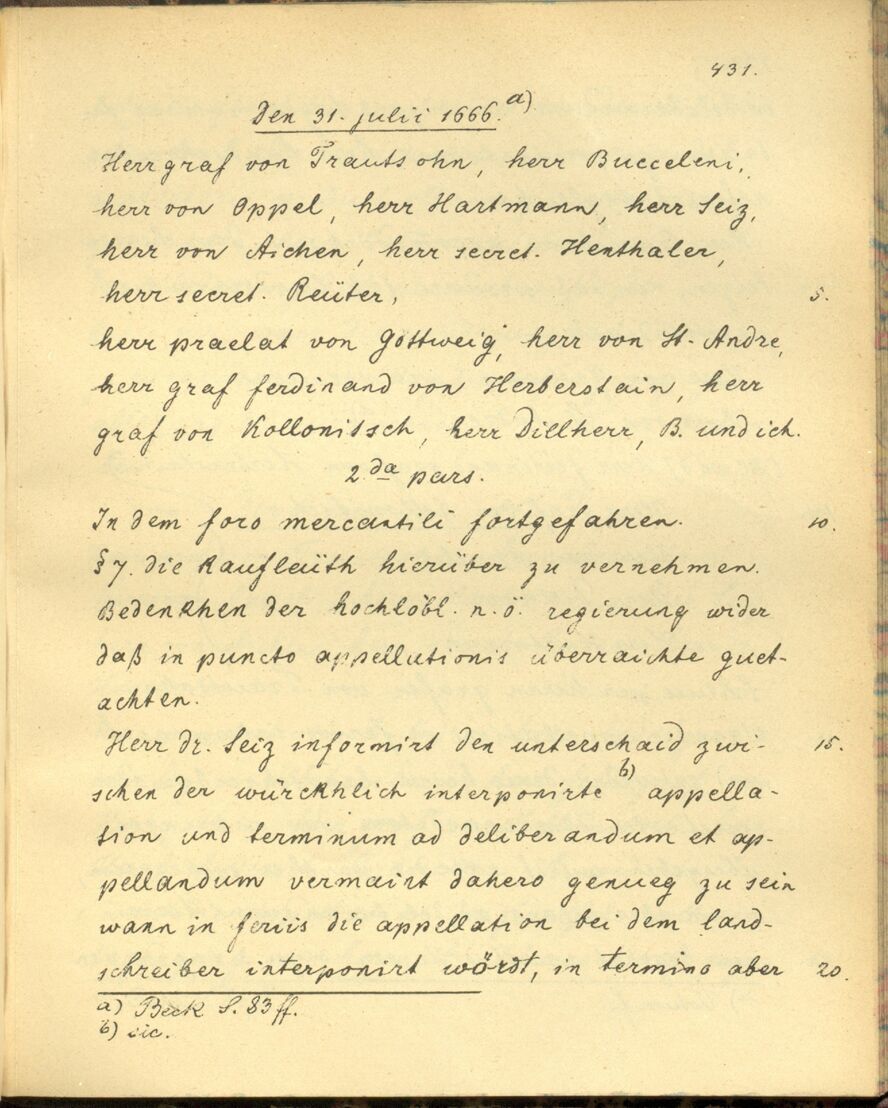 431.
Den 31. julii 1666.a)
Herr graf von Trautsohn, herr Bucceleni,
herr von Oppel, herr Hartmann, herr Seiz,
herr von Aichen, herr secret. Henthaler,
herr secret. Reüter, 5.
herr praelat von Göttweig, herr von St. Andre,
herr graf ferdinand von Herberstain, herr
graf von Kollonitsch, herr Dillherr, B. und ich.
2da pars.
In dem foro mercantili fortgefahren. 10.
§ 7. die Kaufleüth hierüber zu vernehmen.
Bedenkhen der hochlöbl. n. ö. regierung wider
daß in puncto appellutionis überraichte guet-
achten.
Herr dr. Seiz informirt den unterschaid zwi- 15.
schen der würckhlich interponirte b) appella-
tion und terminum ad deliberandum et ap-
pellandum vermaint dahero genueg zu sein
wann in feriis die appellation bei dem land-
schreiber interponirt wördt, in termino aber 20.
a) Beck S. 83 ff.
b) sic.